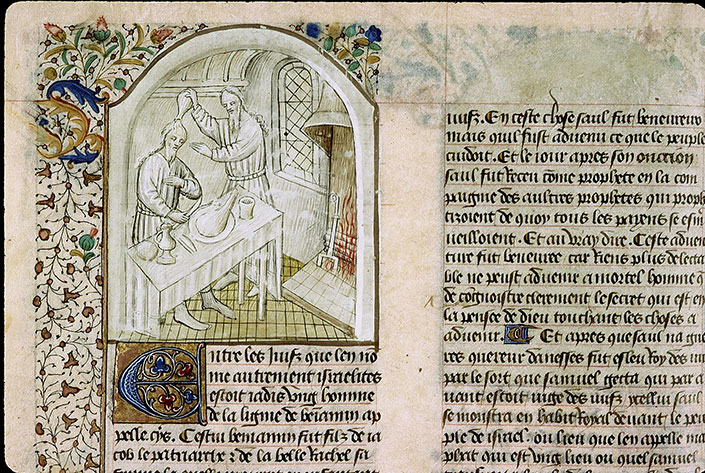 Entre les Juifz que len no
me autrement israelites
estoit iadis ung homme
de la ligne de beniamin ap
pelle cys. Cestui beniamin fut filz de ia
cob le patriarche & de la belle Rachel sa
iuifz. En ceste chose saul fut beneureux
mais quil fust advenu ce que le peuple
cuidoit. Et le iour apres son onction
saul fut Receu come prophete en la com
paignie des aultres prophetes qui proph
tizoient de quoy tous les payens se esm
ueilloient. Et au vray dire. Ceste adven
ture fut beneuree car Riens plus delecta
ble ne peust advenir a mortel homme q
de congnoistre clerement le secret qui est en
la pensee de dieu touchant les choses a
advenir. Et apres que saul na gue
res quereur danesses fut esleu Roy des iui
par le sort que samuel gecta qui par a
uant estoit iuge des iuifz icellui saul
se monstra en habit Royal devant le peu
ple de israel. ou lieu que len appelle ma
sphat qui est ung lieu ou quel samuel